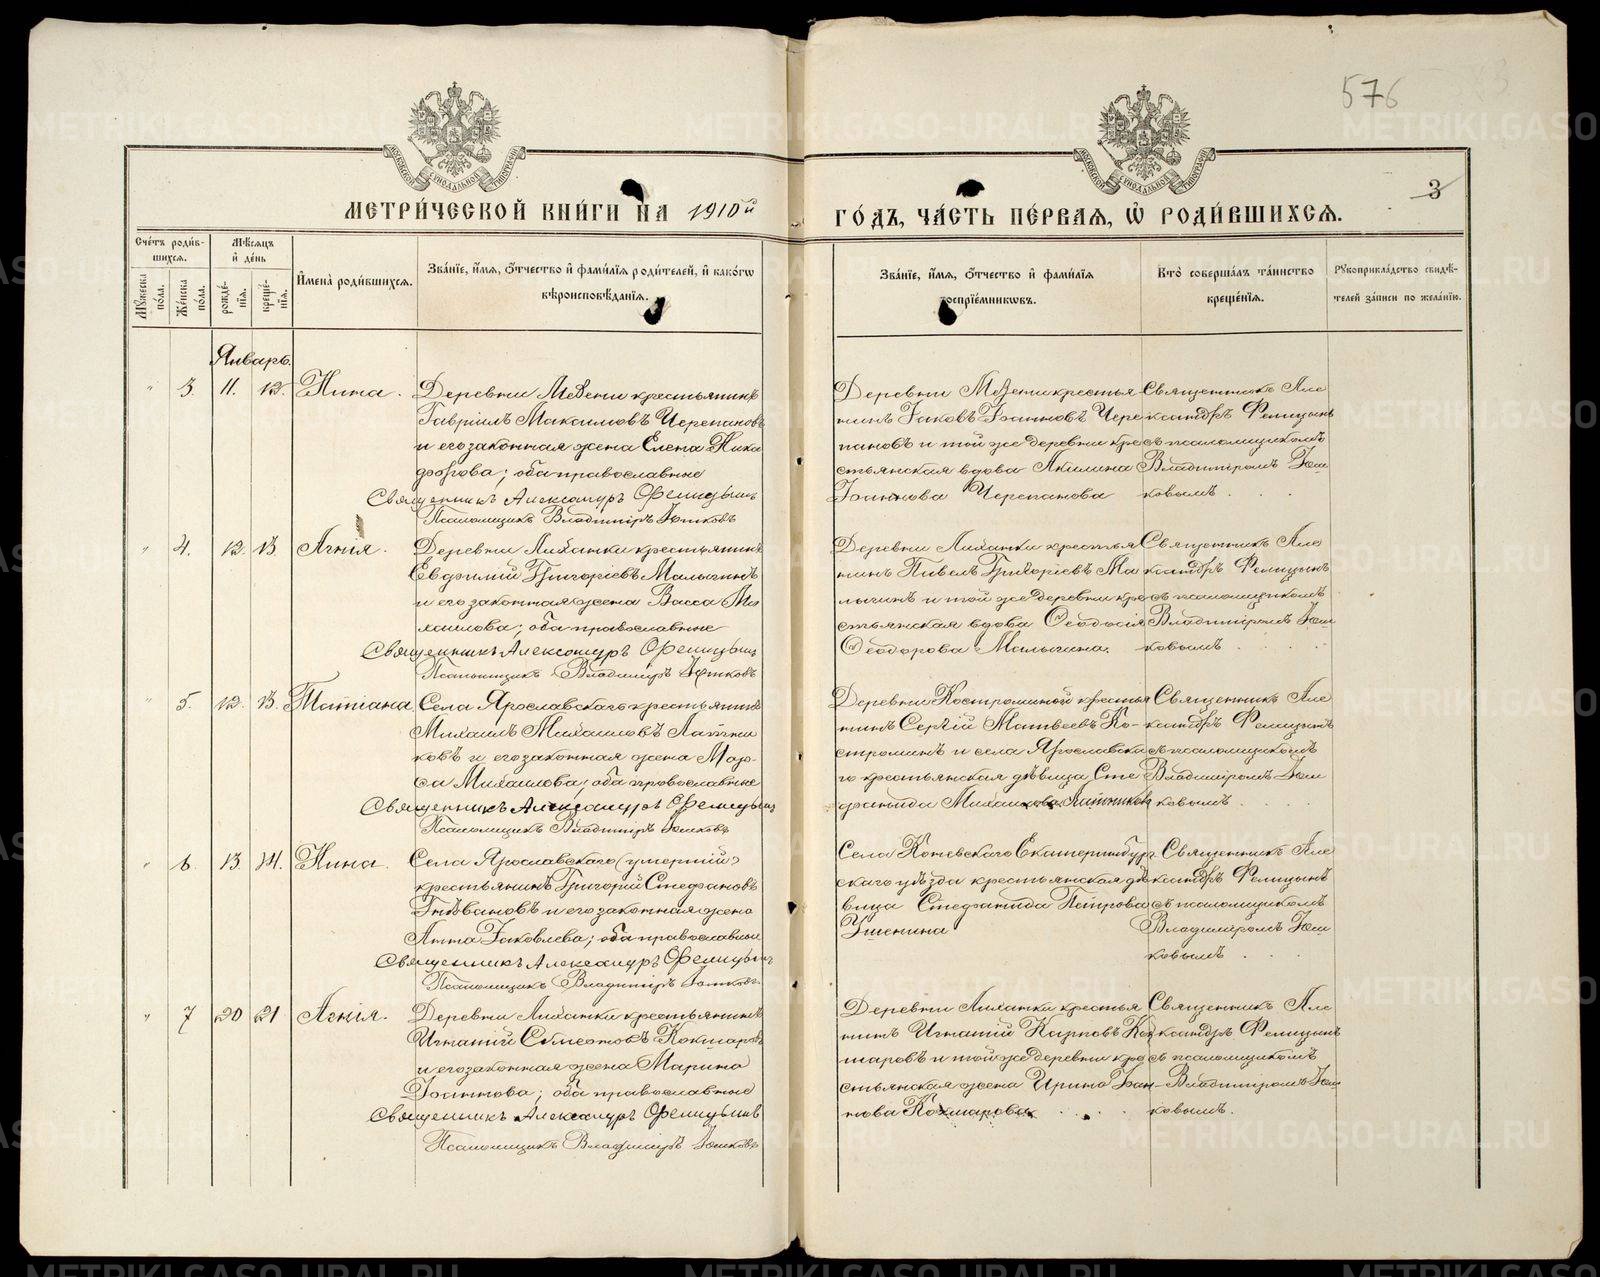 576
3
МЕТРИ́ЧЕСКОЙ КНИ́ГИ НА 1910й
ГО́ДЪ, ЧА́СТЬ ПЕ́РВАЯ, Ѡ РОДИ́ВШИХСЯ.
Сче́тъ роди́в-
шихся.
Мѣ́сяцъ
и҆ де́нь
Мꙋ́жеска по́ла.
Же́нска по́ла.
рожде́-
нїя.
креще́-
нїя.
И҆мена̀ роди́вшихся.
Зва́нїе, и҆́мя, о҆́тчество и҆ фами́лїя роди́телей, и҆ како́гѡ
вѣроисповѣ́данїя.
Зва́нїе, и҆́мя, о҆́тчество и҆ фами́лїя
воспрїе́мникѡвъ.
Кто̀ соверша́лъ та́инство
креще́нїя.
Рꙋкоприкла́дство свидѣ́-
телей за́писи по жела́нїю.
Январь.
" 3. 11. 12. Нина.
Деревни Мезени крестьянинъ
Гавріилъ Максимовъ Черепановъ
и его законная жена Елена Ника
дорова; оба православные
Священникъ Александръ Фелицынъ
Псаломщикъ Владиміръ Юшковъ
Деревни Мезени крестья
нинъ Іаковъ Іоанновъ Чере
пановъ и той же деревни кре
стьянская вдова Акилина
Іоаннова Черепанова
Священникъ Але
ксандръ Фелицынъ
съ псаломщикомъ
Владиміромъ Юш
ковымъ . . .
" 4. 12. 13. Агнія.
Деревни Лиханки крестьянинъ
Евфимій Григоріевъ Малыгинъ
и его законная жена Васса Ми
хаилова; оба православные
Священникъ Александръ Фелицынъ
Псаломщикъ Владиміръ Юшковъ
Деревни Лиханки крестья
нинъ Павелъ Григоріевъ Ма
лыгинъ и той же деревни кре
стьянская вдова Ѳеодосія
Ѳеодорова Малыгина.
Священникъ Але
ксандръ Фелицынъ
съ псаломщикомъ
Владиміромъ Юш
ковымъ . . .
" 5. 12. 13. Татіана
Села Ярославскаго крестьянинъ
Михаилъ Михаиловъ
ковъ и его законная жена Мар-
Михаилова; оба православные
Священникъ Александръ Фелицынъ
Псаломщикъ Владиміръ Юшковъ
Деревни Костроминой крестья
нинъ Сергій Матвеевъ Ко-
строминъ и села Ярославска
го крестьянская дѣвица Сте
фанида
Священникъ Але
ксандръ Фелицынъ
съ псаломщикомъ
Владиміромъ Юш
ковымъ . . .
" 6. 13. 14. Нина.
Села Ярославскаго (умершій)
крестьянинъ Григорій Стефановъ
и его законная жена
Анна Іаковлева; оба православные
Священникъ Александръ Фелицынъ
Псаломщикъ Владиміръ Юшковъ
Села Коневскаго Екатеринбур
скаго уѣзда крестьянская дѣ
вица Стефанида Петрова
Ушенина
Священникъ Але
ксандръ Фелицынъ
съ псаломщикомъ
Владиміромъ Юш
ковымъ . . .
" 7 20 21. Агнія.
Деревни Лиханки крестьянинъ
Игнатій Симеоновъ Кокшаровъ
и его законная жена Марина
Іоаннова; оба православные
Священникъ Александръ Фелицынъ
Псаломщикъ Владиміръ Юшковъ
Деревни Лиханки крестья
нинъ Игнатій Карповъ Кок
шаровъ и той же деревни кре
стьянская жена Ирина Іоан-
нова Кокшарова . . .
Священникъ Але
ксандръ Фелицынъ
съ псаломщикомъ
Владиміромъ Юш
ковымъ.
METRIKI.GASO-URAL.RU